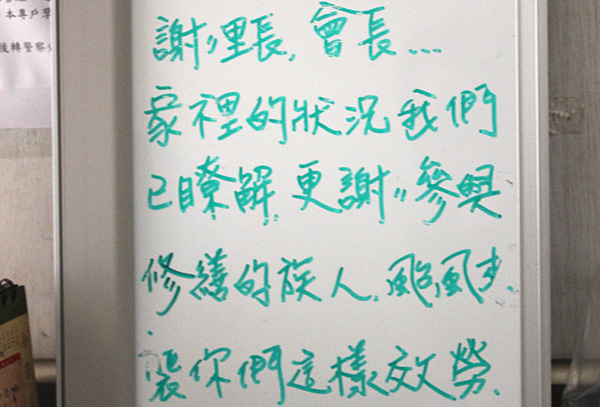 本專戶
後轉警察
謝〃里長, 會長....
家裡的狀況我們
已瞭解, 更謝〃參與
修繕的族人, 颱風
你們這樣效勞.